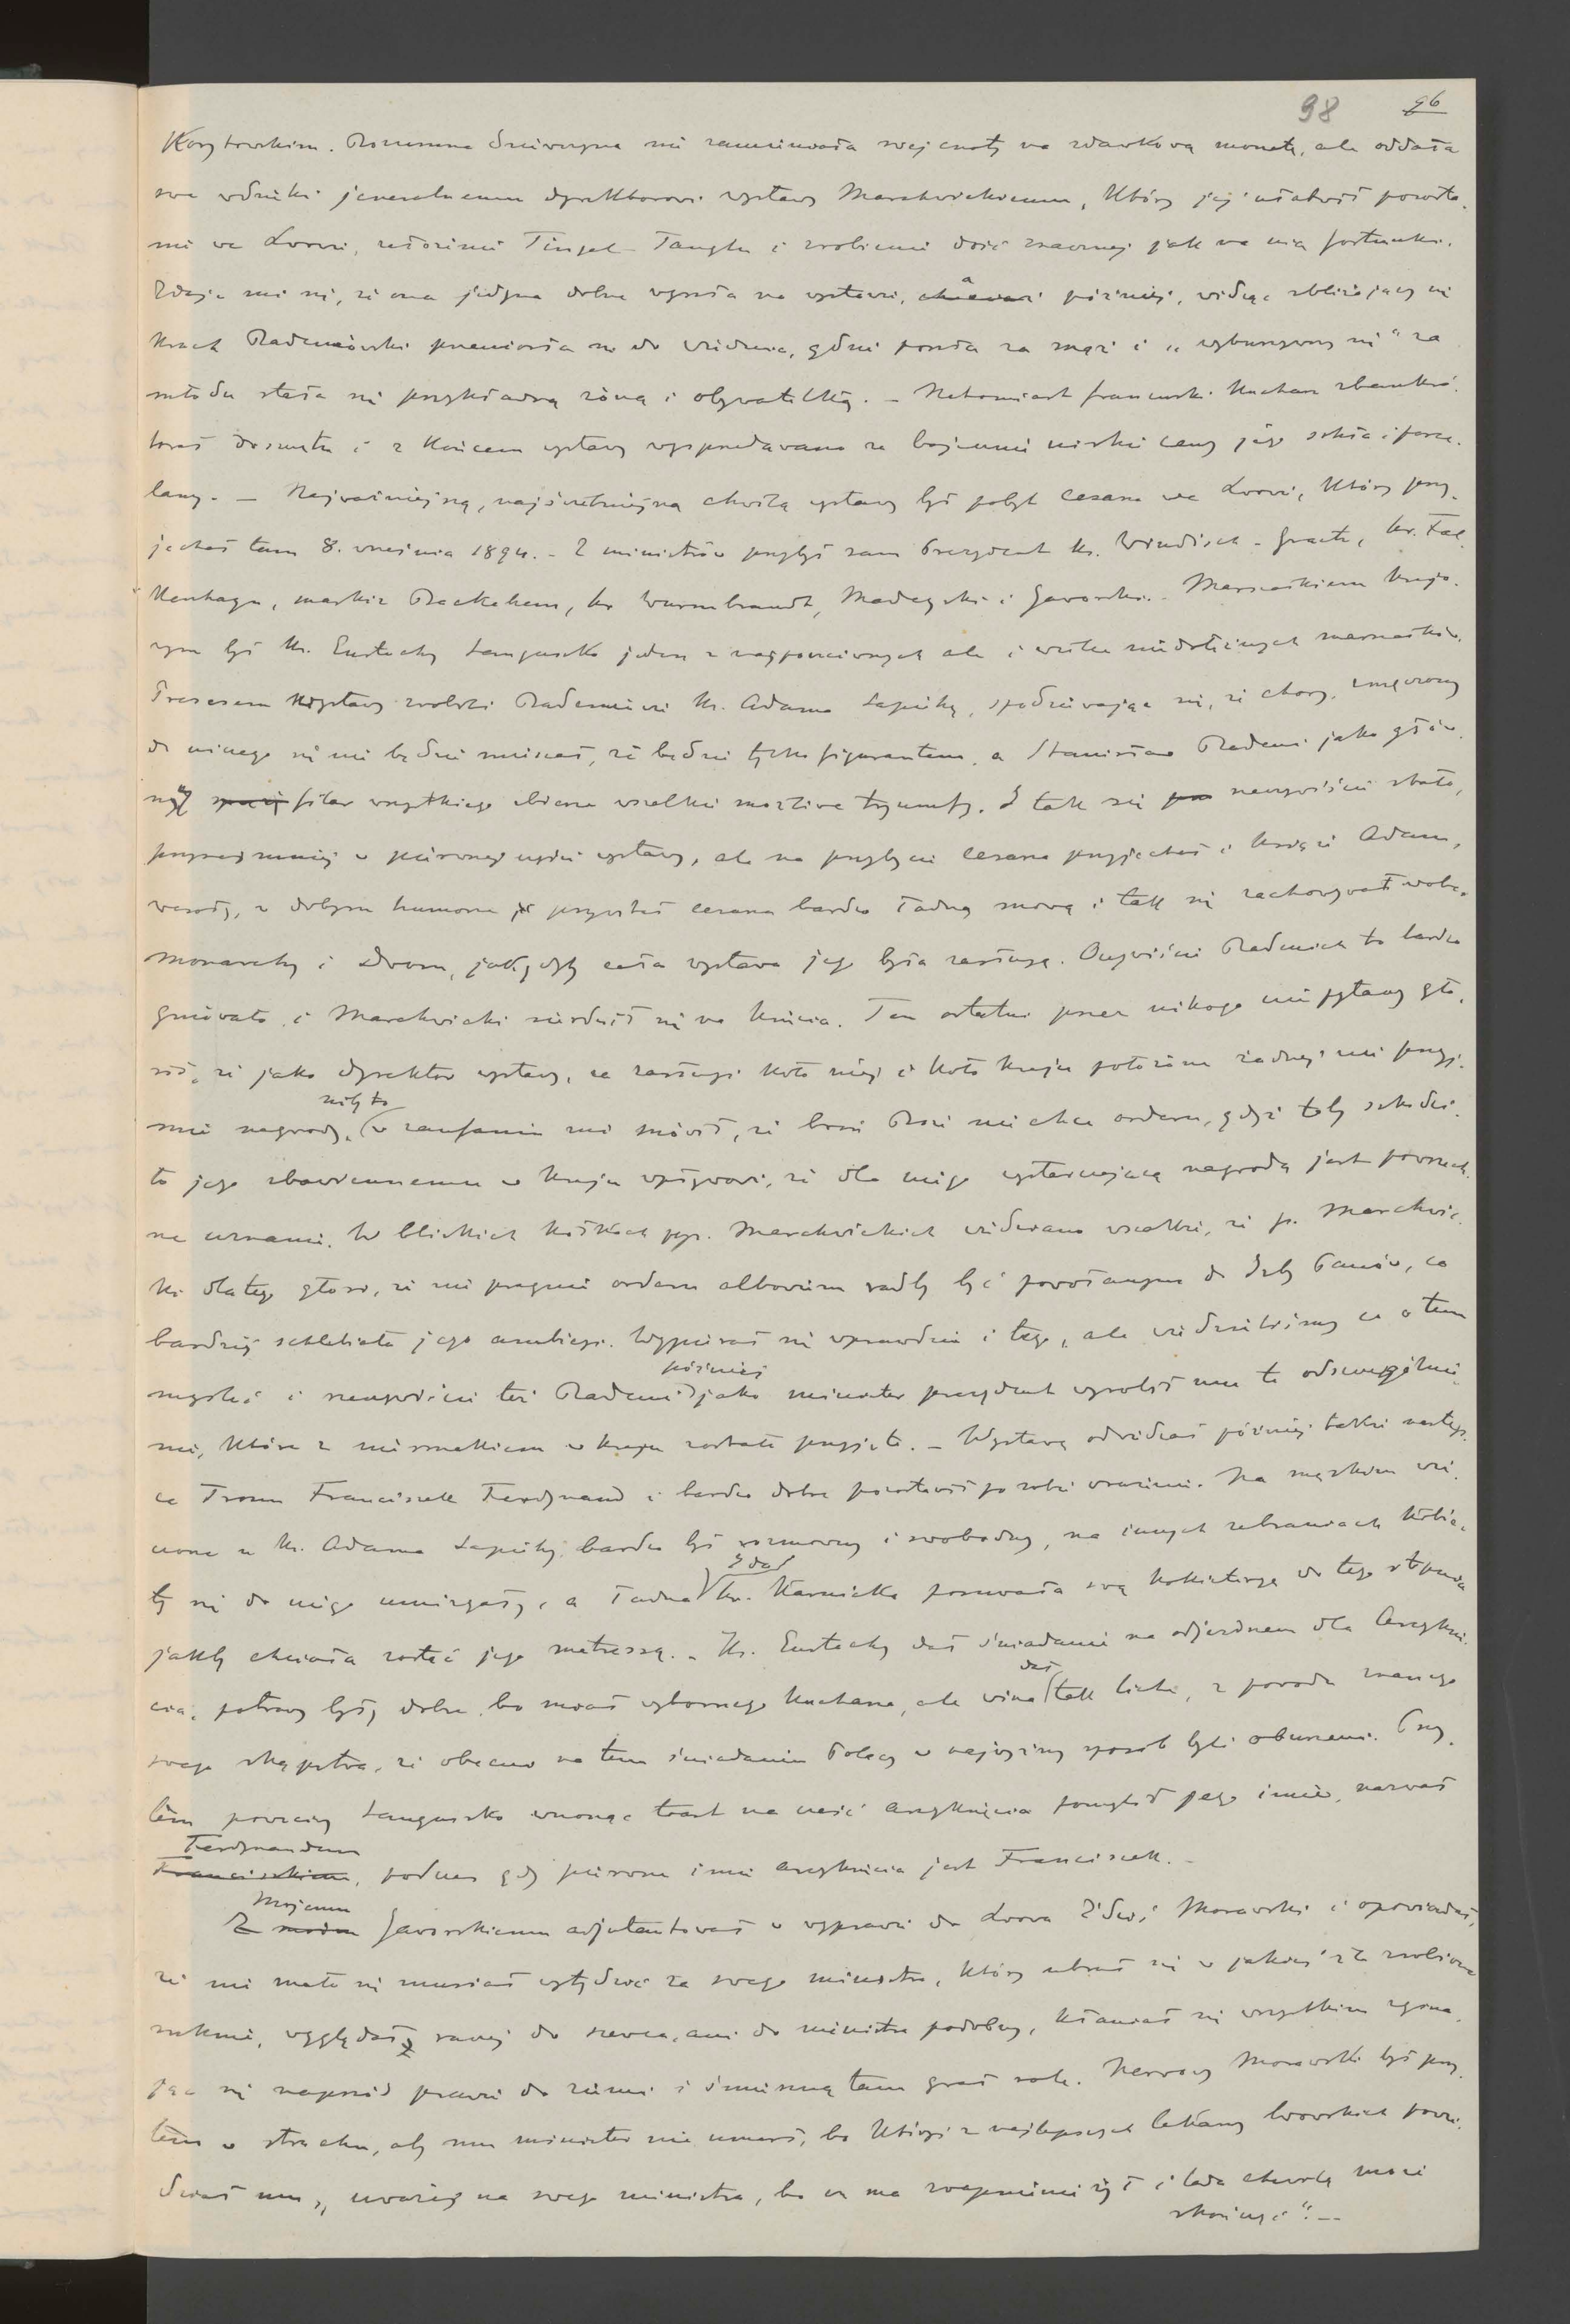 98 96
Korytowskim. Rozumna dziewczyna nie zamieniała swej cnoty na zdawkową monetę, ale oddała
swe wdzięki jeneralnemu dyrektorowi wystawy Marchwickiemu, który jej ułatwił powodze-
nie we Lwowi, założenie Tingel-Tanglu i zrobienie dość znacznej jak na nią fortunki.
Zdaje mi się, że ona jedyna dobrze wyszła na wystawie, a później, widząc zbliżający się
krach Badeniowski przeniosła się do Wiednia, gdzie poszła za mąż i „wyburzywszy się" za
młodu stała się przykładną żoną i obywatelką. - Natomiast francuski kucharz zbankru-
tował doszczętu i z końcem wystawy wysprzedawano za bajecznie niskie ceny jego szkła i porce-
lany. - Najważniejszą, najświetniejszą chwilą wystawy był pobyt cesarza we Lwowi, który przy-
jechał tam 8. września 1894. - Z ministrów przybył sam Prezydent ks. Windisch-Graetz, hr. Fal-
kenhayn, markiz Bacquehem, hr Wurmbrandt, Madeyski i Jaworski. - Marszałkiem krajo-
wym był ks. Eustachy Sanguszko jeden z najpoczciwszych ale i wielce niedołężnych marszałków.
Prezesem wystawy zrobili Badeniowie ks. Adama Sapiehę, spodziewając się, że chory, zmęczony
do niczego się nie będzie mieszał, że będzie tylko figurantem, a Stanisław Badeni jako głów-
ny filar wszystkiego zbierze wszelkie możliwe tryumfy. I tak się rzeczywiście stało,
przynajmniej w pierwszej części wystawy, ale na przybycie cesarza przyjechał i książe Adam,
wesoły, w dobrym humorze przywitał cesarza bardzo ładną mową i tak się zachowywał wobec
monarchy i dworu, jakgdyby cała wystawa jego była zasługą. Oczywiście Badenich to bardzo
gniewało, i Marchwicki sierdził się na księcia. Ten ostatni przez nikogo nie pytany gło-
sił, że jako dyrektor wystawy, za zasługi koło niej i koło kraju położone żadnej nie przyj-
mie nagrody, niby to w zaufaniu mi mówił, że broń Boże nie chce orderu, gdyż toby szkodzi-
ło jego zbawiennemu w kraju wpływowi, że dla niego wystarczającą nagrodą jest powszech-
ne uznanie. W bliskich kołkach pp. Marchwickich wiedziano wszakże, że p. Marchwic-
ki dlatego głosi, że nie pragnie orderu albowiem radby być powołanym do Izby Panów, co
bardziej schlebiało jego ambicyi. Wypierał się wprawdzie i tego, ale wiedzieliśmy co o tem
myśleć i rzeczywiście też Badeni później jako minister prezydent wyrobił mu to odszczególnie-
nie, które z niesmakiem w kraju zostało przyjęte. - Wystawę odwiedzał później także następ-
ca Tronu Franciszek Ferdynand i bardzo dobre pozostawił po sobie wrażenie. Na męskim wie-
czorze u ks. Adama Sapiehy, bardzo był rozmowny i swobodny, na innych zebraniach kobie-
ty się do niego umizgały, a ładna Ida hr. Karnicka posuwała swą kokieteryę do tego stopnia
jakby chciała zostać jego metressą. - Ks. Eustachy dał śniadanie na odjezdnem dla Arcyksię-
cia, potrawy były dobre, bo miał wybornego kucharza, ale wina dał tak liche, z powodu znanego
swego skąpstwa, że obecni na tem śniadaniu Polacy w najwyższy sposób byli oburzeni. Przy-
tem poczciwy Sanguszko wnosząc toast na cześć arcyksięcia pomylił jego imie, nazwał
Ferdynandem, podczas gdy pierwsze imie arcyksięcia jest Franciszek. -
Mojemu Jaworskiemu adjutantował w wyprawie do Lwowa Zdziś Morawski i opowiadał,
że nie mało się musiał wstydzić za swego ministra, który ubrał się w jakieś źle zrobione
suknie, wyglądał raczej do szewca, ani do ministra podobny, kłaniał się wszystkim zgina-
jąc się naprzód prawie do ziemi i śmieszną tam grał rolę. Nerwowy Morawski był przy-
tem w strachu, aby mu minister nie umarł, bo któryś z najlepszych lekarzy lwowskich powie-
dział mu, „uważaj na swego ministra, bo on ma zwapnienie żył i lada chwilę może
skończyć". -